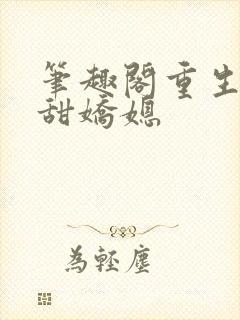 筆趣閣重生
甜嬌媳
為輕塵